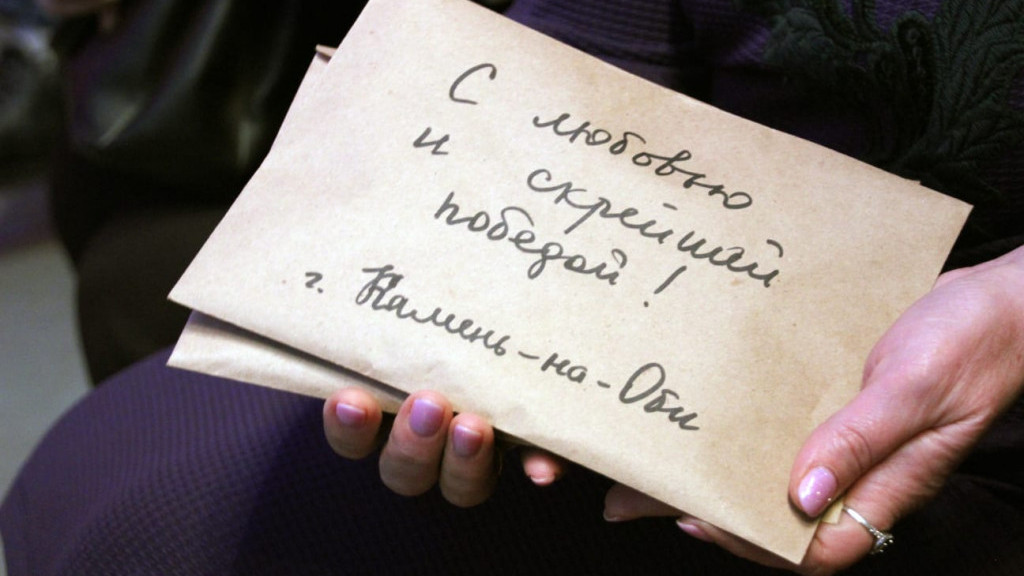 С любовью
и скрейшей
победой!
г. Камень-на-Оби